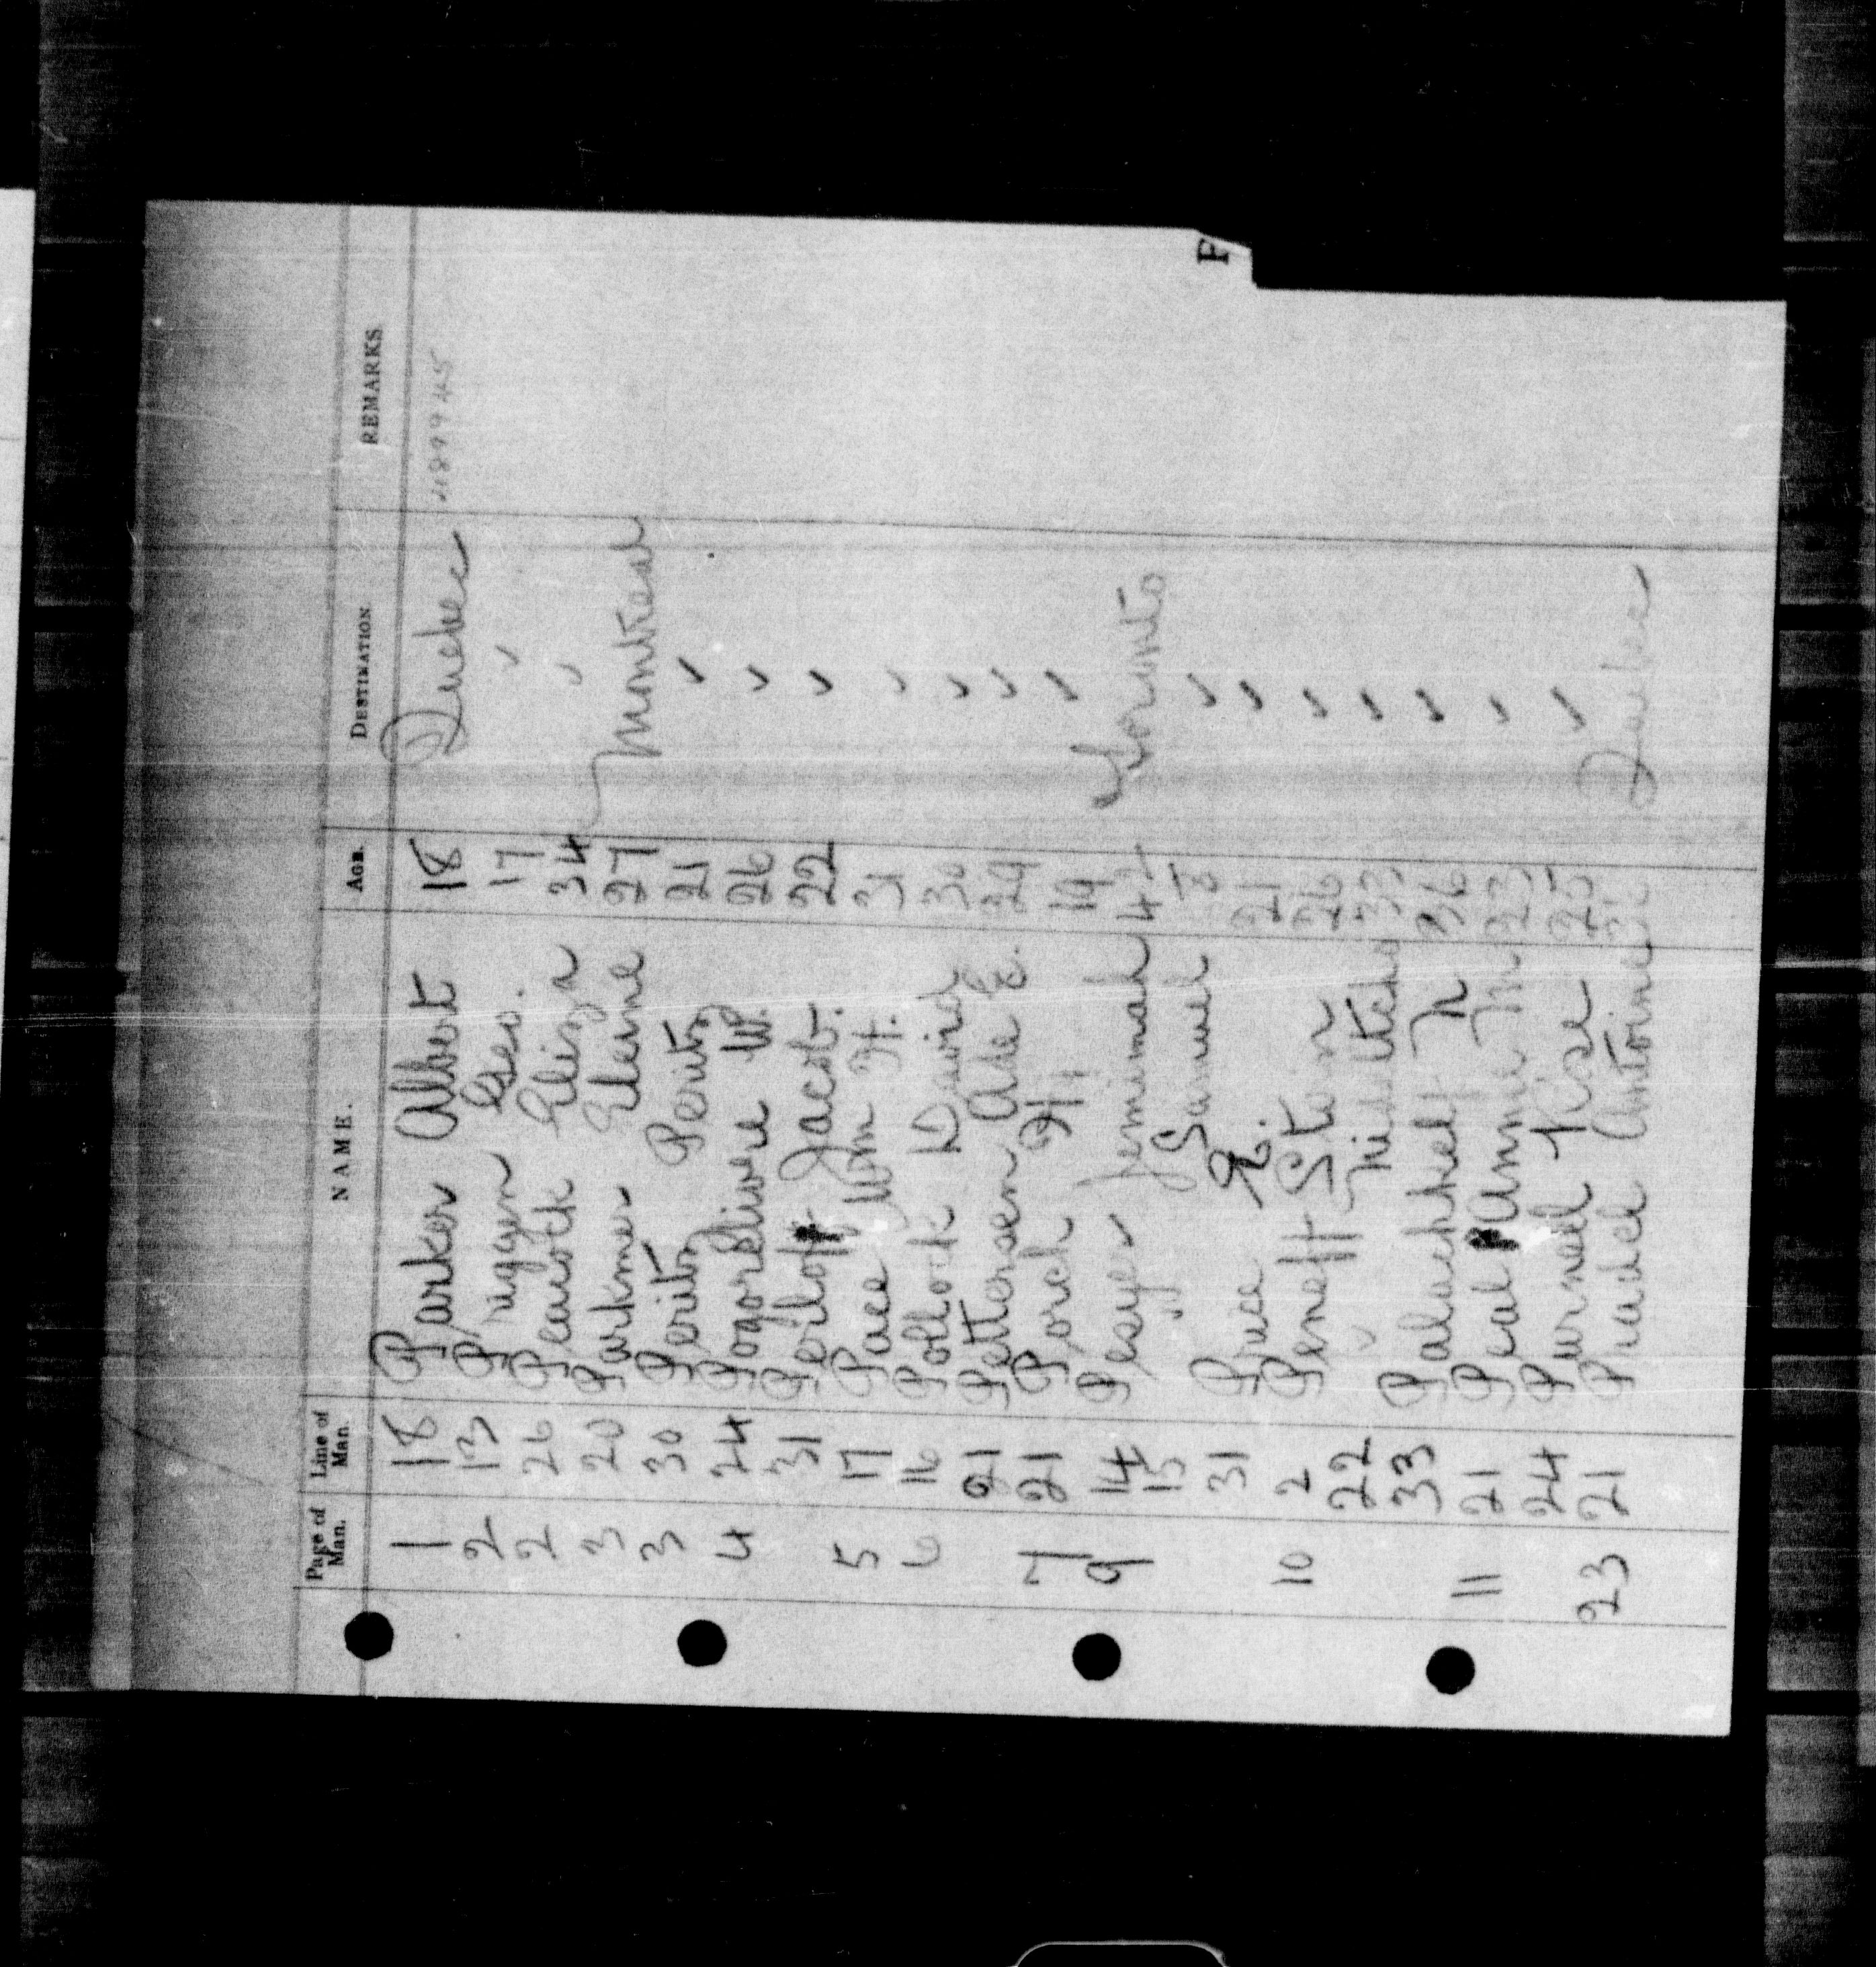 Page of Man. Line of Man. NAME. AGE. DESTINATION REMARKS
1 18 Parker Albert 18 Quebec
2 13 Geo. 17 ✓
2 26 Peacock Eliza 34 ✓
3 20 Parkmer Elaine 27 Montreal
3 30 Perito Perito 21 ✓
4 24 W. 26 ✓
31 Perlott Jacob. 22 ✓
5 17 Pace Wm H. 31 ✓
6 16 Pollock David 30 ✓
21 Pettersen E. 29 ✓
7 21 Porch H. 19 ✓
9 14 Pesyer Jemimah 42 Toronto
15 " Samuel ✓
31 21 ✓
10 2 Peneff 26 ✓
22 33 ✓
33 36 ✓
11 21 Peal Annie M 23 ✓
24 Purnell 25 ✓
23 21 Antoine Quebec